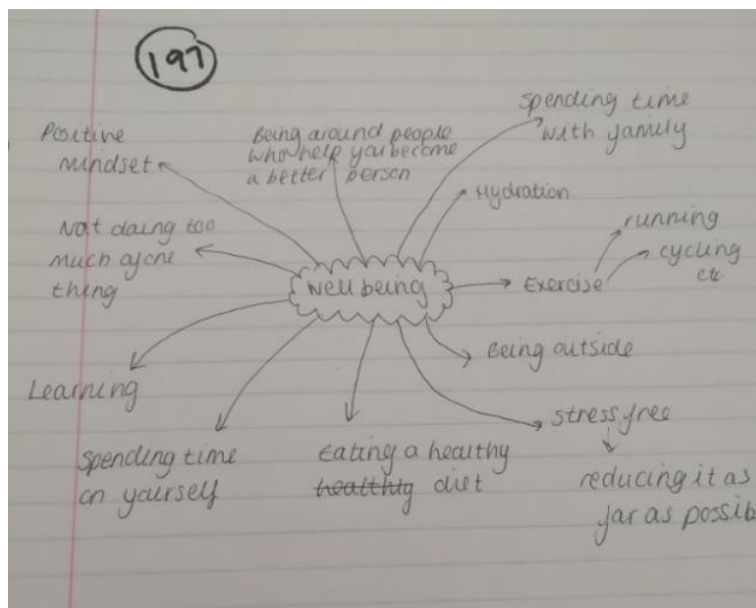 197
Positive
mindset
Being around people
who help you become
a better person
Spending time
with family
Hydration
Exercise
running
cycling
etc
Being outside
stress free
reducing it as
far as possib
Eating a healthy
healthig diet
Spending time
on yourself
Learning
Not doing too
much of one
thing
Wellbeing